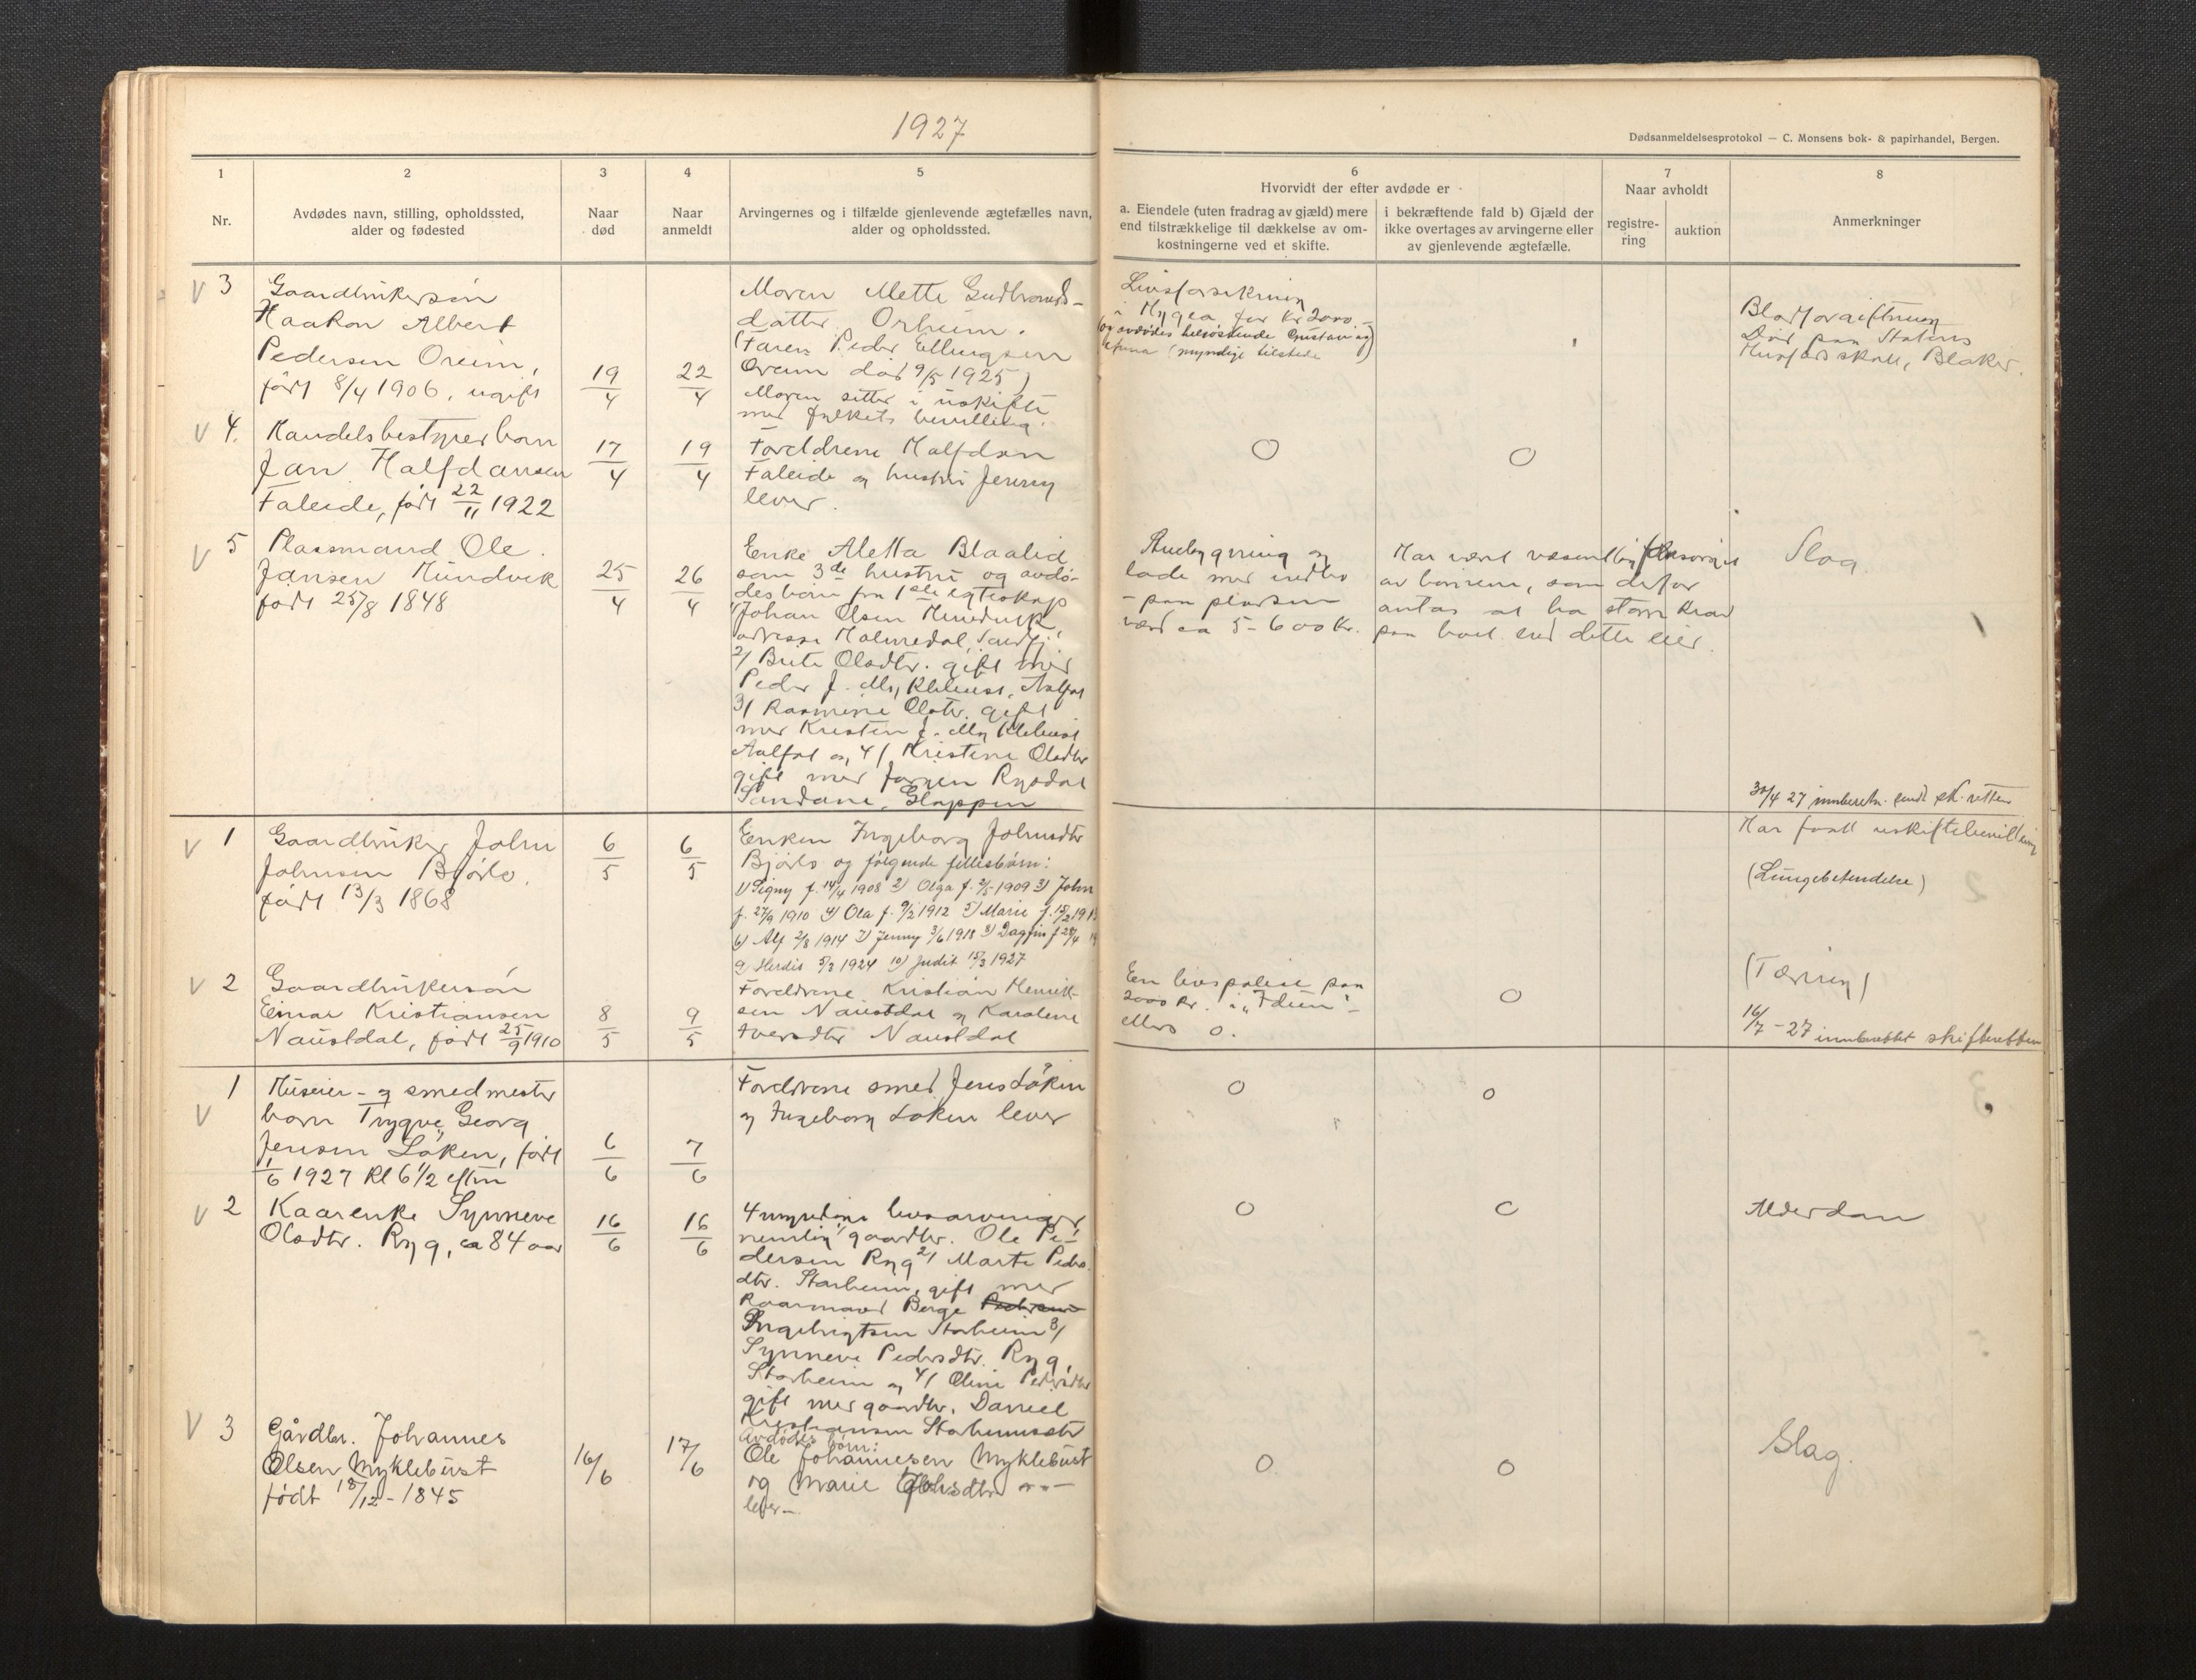 1927
Dødsanmeldelsesprotokol — C. Monsens bok- & papirhandel, Bergen.
1
2
3
4
5
6
7
8
Nr.
Avdødes navn, stilling, opholdssted,
alder og fødested
Naar
død
Naar
anmeldt
Arvingernes og i tilfælde gjenlevende ægtefælles navn,
alder og opholdssted.
Hvorvidt der efter avdøde er
a. Eiendele (uten fradrag av gjæld) mere
end tilstrækkelige til dækkelse av om-
kostningerne ved et skifte.
i bekræftende fald b) Gjæld der
ikke overtages av arvingerne eller
av gjenlevende ægtefælle.
Naar avholdt
registre-
ring
auktion
Anmerkninger
V 3
Gaardbrukersøn
Haakon Albert
Pedersen Oreim,
født 8/4 1906, ugift
19/4
22/4
Moren Mette Gudbrands-
datter Orheim.
(Faren Peder Ellingsen
Oreim død 9/5 1925)
Moren sitter i uskifte
med fylkets bevilling.
Livsforsikring
i Hygea for Kr 2000 -
(og avdødes helsøskende Gustav og
(myndige tilstede
Blodforgiftning
Død paa Statens
Husfordskole, Blaker.
V 4.
Handelsbestyrer barn
Jan Halfdansen
Faleide, født 22/11 1922
17/4
19/4
Foreldrene Halfdan
Faleide og hustru Jenny
lever.
0
0
V 5
Plassmand Ole
Jansen Hundvik
født 25/8 1848
25/4
26/4
Enke Aletta Blaalid
som 3de hustru og avdø-
des børn fra 1ste egteskap
1/ Johan Olsen Hundvik,
adresse Holmedal, Sundfj.
2/ Brite Olsdtr. gift med
Peder J. Myklebust, Aalfot
3/ Rasmine Olsdtr. gift
med Kristen J. Myklebust
Aalfot og 4/ Kristine Olsdtr
gift med Jørgen Rysdal
Sandane, Gloppen
Stuebygning og
løde med indbo
- paa pladsen
værd ca 5-600 Kr.
Har vært væsentlig forsørget
av børnene, som derfor
antas at ha større krav
paa boet end dette eier.
Slag.
30/4 27 innberetn. sendt sk.retten
V 1
Gaardbruker John
Johnsen Bjørlo,
født 13/3 1868
6/5
6/5
Enken Ingeborg Johnsdtr
Bjørlo og følgende fellesbørn:
1) Signy f. 14/4 1908 2) Olga f. 2/5 1909 3) John
f. 27/9 1910 4) Ola f. 9/2 1912 5) Marie f. 15/2 191
6) Alf 2/8 1914 7) Jenny 3/6 1918 8) Dagfin f 28/4
9) Herdis 5/3 1924 10) Judit 15/3 1927
Har faatt uskiftebevilling
(Lungebetendelse)
V 2
Gaardbrukersøn
Einar Kristiansen
Naustdal, født 25/9 1910
8/5
9/5
Foreldrene Kristian Henrik-
sen Naustdal og Karoline
Iversdtr Naustdal
Een livspolise paa
2000 kr. i "Idun" -
ellers 0.
0
(Tæring)
16/7 - 27 innberettet skifteretten
V 1
Huseier- og smedmester
barn Trygve Georg
Jensen Løken, født
1/6 1927 Kl 6 1/2 efterm
6/6
7/6
Foreldrene smed Jens Løken
og Ingeborg Løken lever
0
0
V 2
Kaarenke Synneve
Olsdtr. Ryg, ca 84 aar
16/6
16/6
4 myndige livsarvinger
nemlig 1/ gaardbr. Ole Pe-
dersen Ryg 2/ Marte Peders-
dtr. Starheim, gift med
Kaarmand Berge Pedersen
Ingebrigtsen Starheim 3/
Synneve Pedersdtr. Ryg,
Starheim og 4/ Oline Pedersdtr
gift med gaardbr. Daniel
Kristiansen Starheimsetr
0
0
Alderdom
V 3
Gårdbr. Johannes
Olsen Myklebust
født 18/12 - 1845
16/6
17/6
Avdødes børn:
Ole Johannesen Myklebust
og Marie Johsdtr —"—
lever —
0
0
Slag.